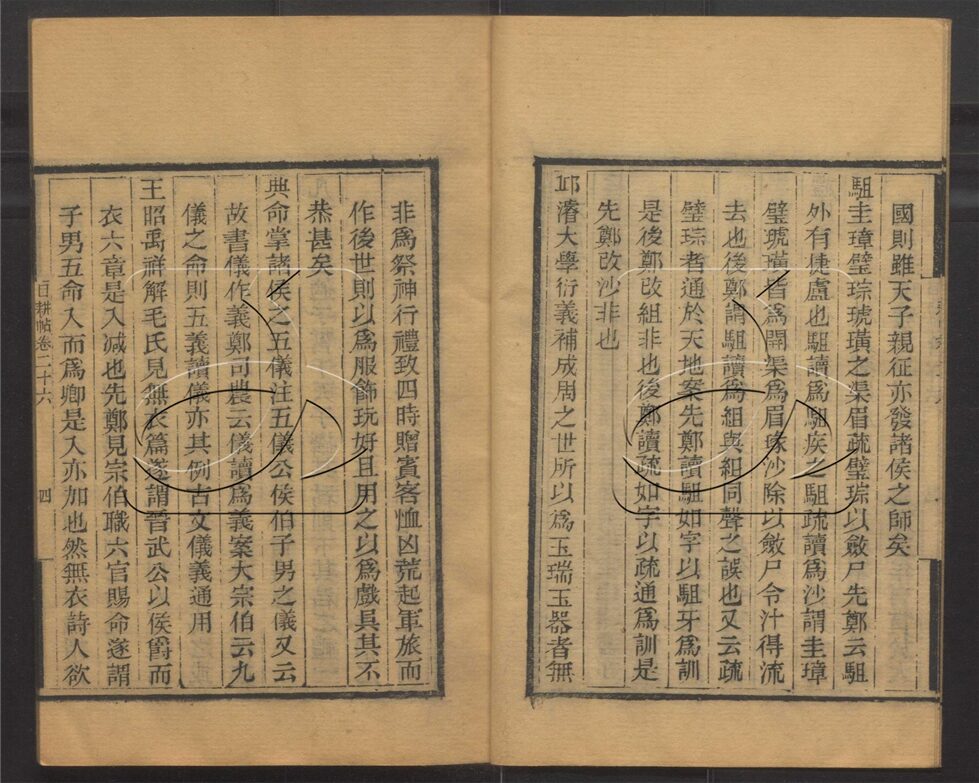 國則雖天子親征亦發諸侯之師矣
駔圭璋璧琮琥璜之渠眉疏璧琮以斂尸先鄭云駔
外有捷盧也駔讀爲駔疾之駔疏讀爲沙謂圭璋
璧琥璜皆爲開渠爲眉瑑沙除以斂尸令汁得流
去也後鄭謂駔讀爲組與組同聲之誤也又云疏
璧琮者通於天地案先鄭讀駔如字以駔牙爲訓
是後鄭改組非也後鄭讀疏如字以疏通爲訓是
先鄭改沙非也
邱濬大學衍義補成周之世所以爲玉瑞玉器者無
非爲祭神行禮致四時贈賓客恤凶荒起軍旅而
作後世則以爲服飾玩好且用之以爲戲具其不
恭甚矣
典命掌諸侯之五儀注五儀公侯伯子男之儀又云
故書儀作義鄭司農云儀讀爲義案大宗伯云九
儀之命則五義讀儀亦其例古文儀義通用
王昭禹詳解毛氏見無衣篇遂謂晉武公以侯爵而
衣六章是入減也先鄭見宗伯職六官賜命遂謂
子男五命入而爲卿是入亦加也然無衣詩人欲
目耕帖卷二十六
四